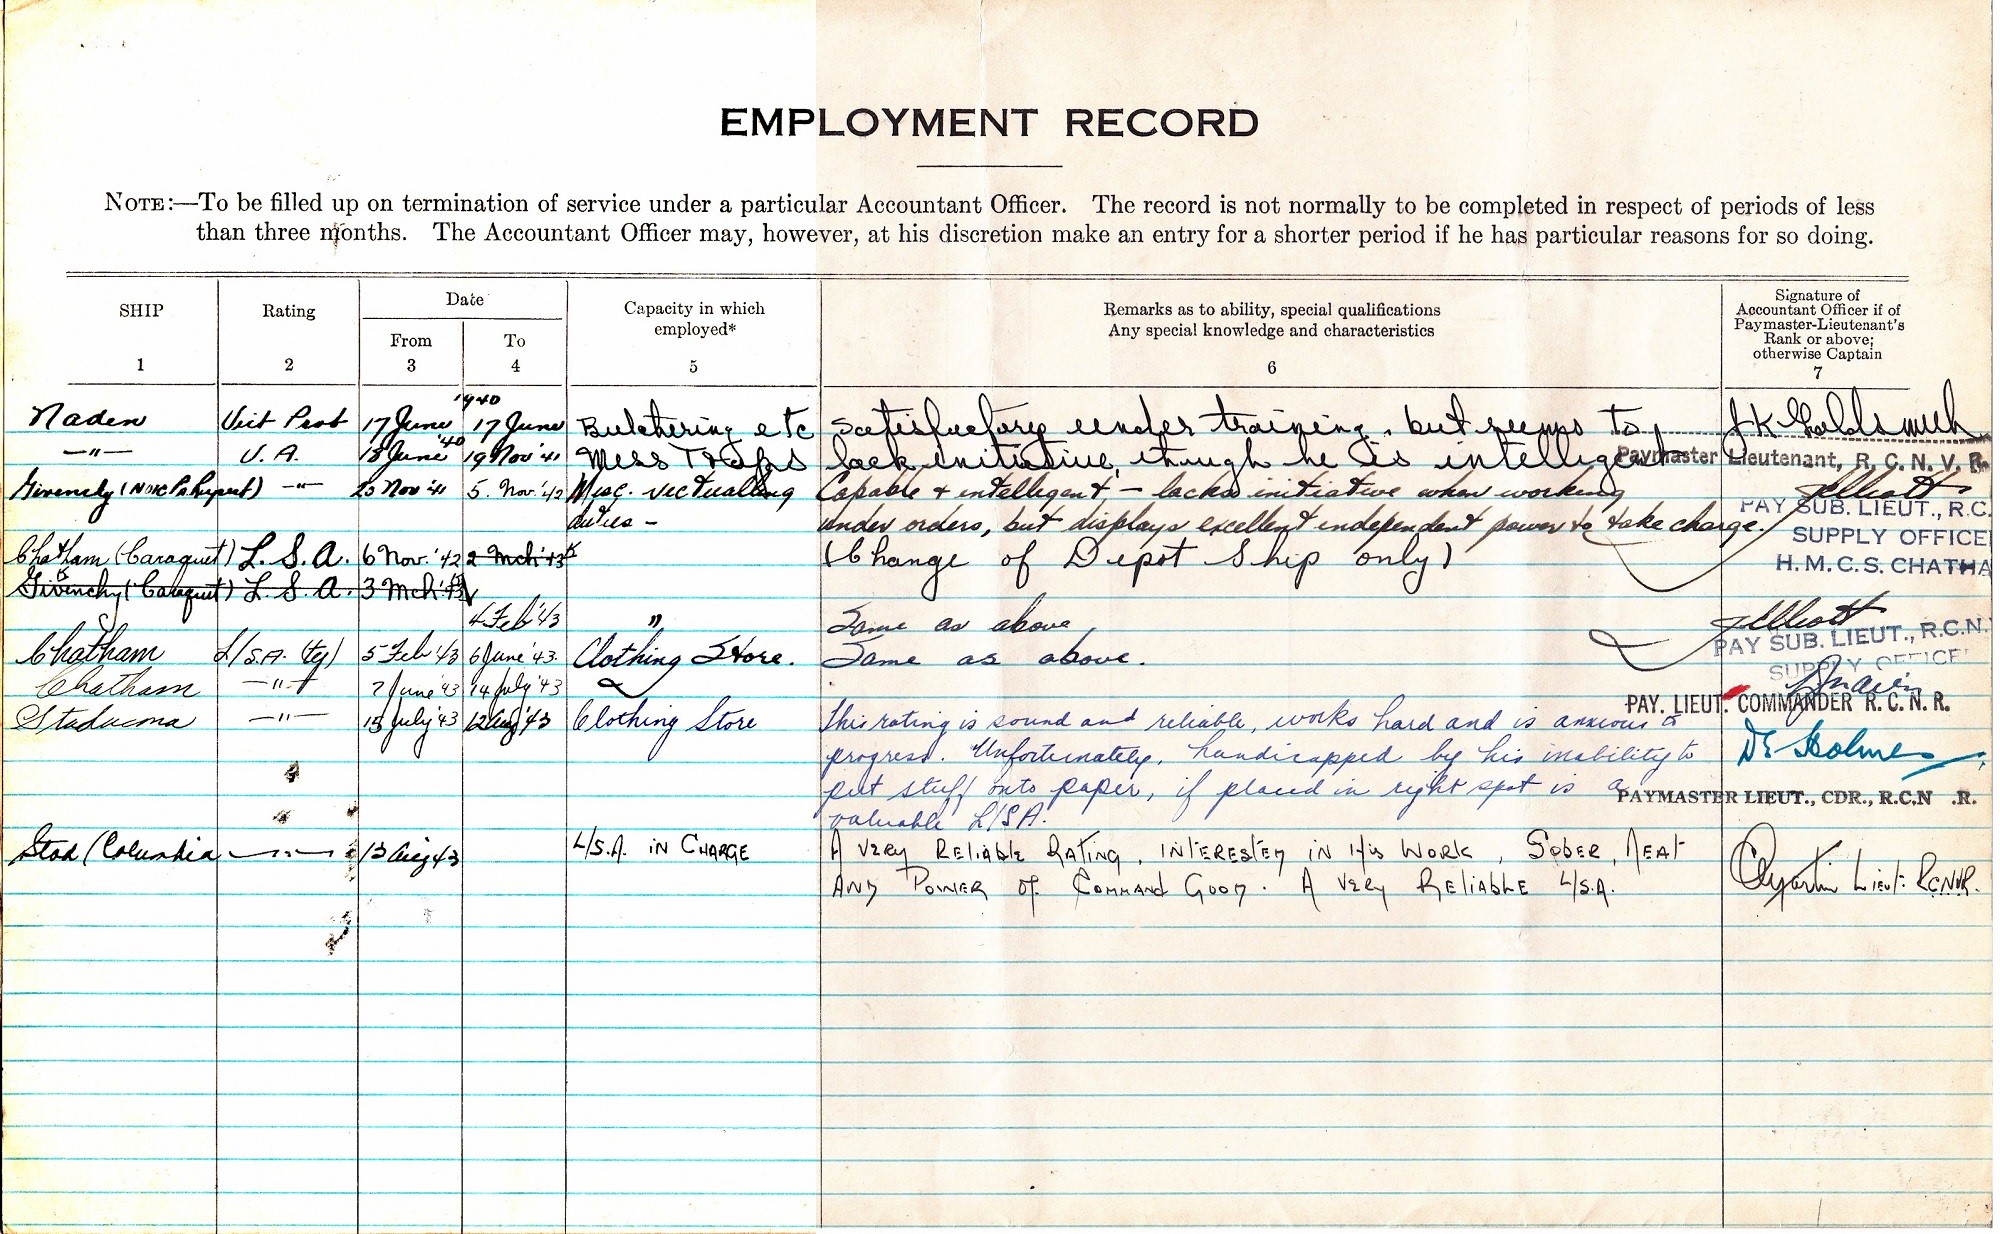 EMPLOYMENT RECORD
NOTE:—To be filled up on termination of service under a particular Accountant Officer. The record is not normally to be completed in respect of periods of less
than three months. The Accountant Officer may, however, at his discretion make an entry for a shorter period if he has particular reasons for so doing.
SHIP Rating Date Capacity in which employed* Remarks as to ability, special qualifications Signature of
Any special knowledge and characteristics Accountant Officer if of
From To Paymaster-Lieutenant's
Rank or above;
otherwise Captain
1 2 3 4 5 6 7
1940
Naden Vict Prob 17 June 17 June Butchering etc Satisfactory under training, but seems to
—"— V.A. 18 June '40 19 Nov '41 Mess Traps lack initiative, though he is intelligent Paymaster Lieutenant, R. C. N. V. R.
Givenchy (NOIC Pr Rupert) —"— 20 Nov '41 5. Nov. '42 Misc. victualling Capable & intelligent – lacks initiative when working Elliott
duties – under orders, but displays excellent independent power to take charge. PAY SUB. LIEUT., R.C.
SUPPLY OFFICE
Chatham (Caraquet) L. S. A. 6 Nov. '42 2 Mch '43 (Change of Depot Ship only) H.M.C.S. CHATHA
Givenchy (Caraquet) L. S. A. 3 Mch '43
4 Feb '43 " Same as above Elliott
Chatham L/S.A. (ty) 5 Feb '43 6 June '43. Clothing Store. Same as above. PAY SUB. LIEUT., R.C.N.
SUPPLY OFFICE
Chatham —"— 7 June '43 14 July '43
PAY. LIEUT. COMMANDER R. C. N. R.
Stadacona —"— 15 July '43 12 Aug '43 Clothing Store This rating is sound and reliable, works hard and is anxious to
progress. Unfortunately, handicapped by his inability to Holmes
put stuff onto paper, if placed in right spot is a PAYMASTER LIEUT., CDR., R.C.N .R.
valuable L/SA.
Stad (Columbia —"— 13 Aug 43 L/S.A. IN CHARGE A VERY RELIABLE RATING, INTERESTED IN HIS WORK, SOBER, NEAT
AND POWER OF COMMAND GOOD. A VERY RELIABLE L/S.A. Lieut: R.C.N.V.R.